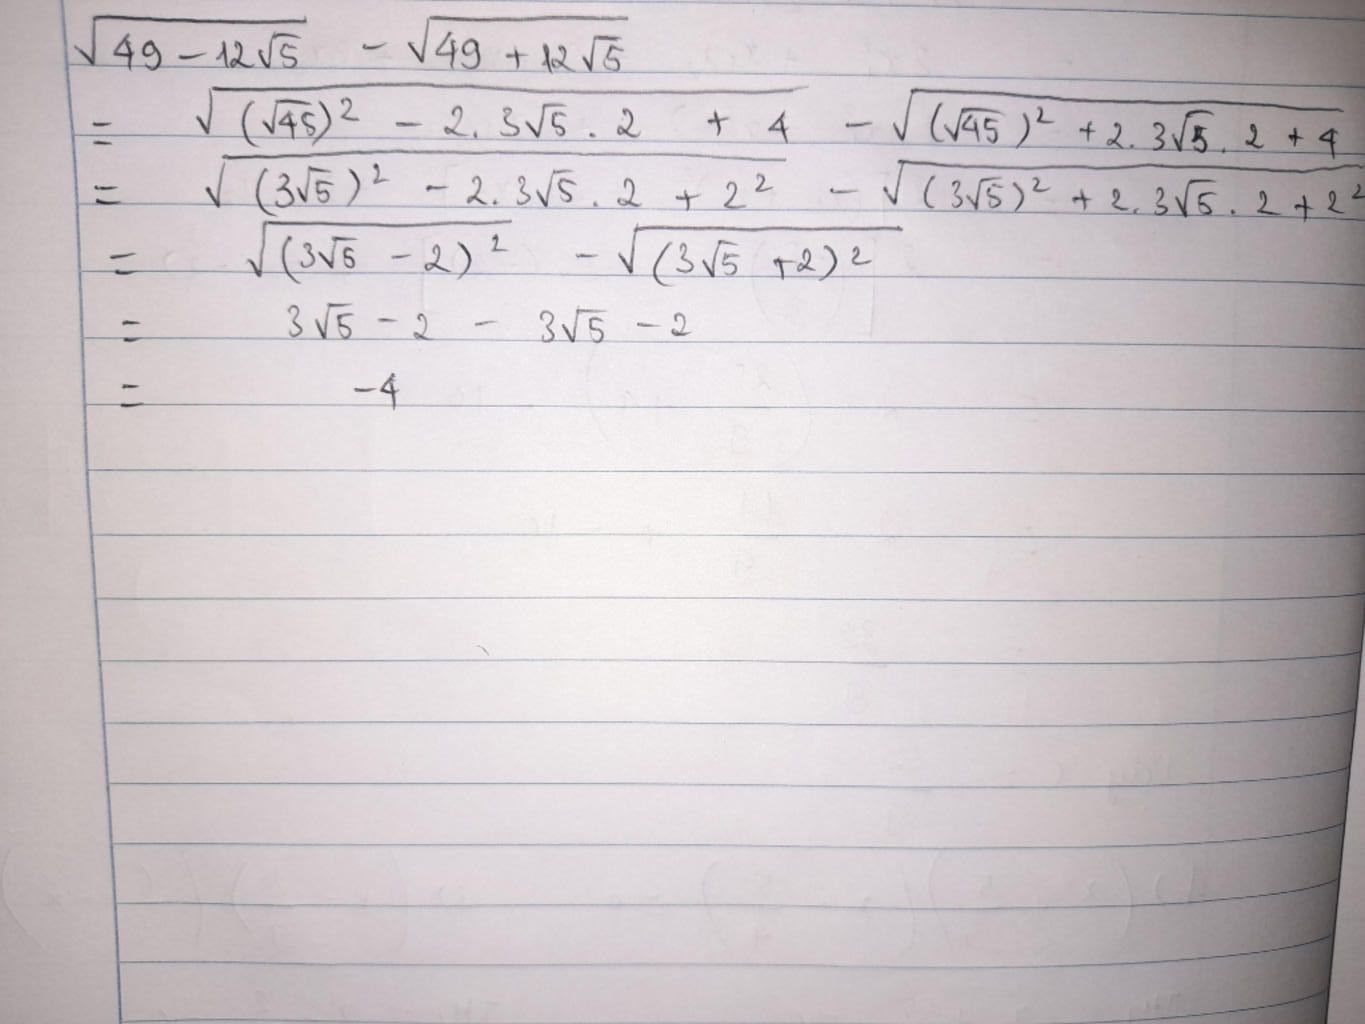 √49 − 12√5 − √49 + 12√5
= √(√45)² − 2. 3√5 . 2 + 4 − √(√45)² + 2. 3√5. 2 + 4
= √(3√5)² − 2. 3√5 . 2 + 2² − √(3√5)² + 2. 3√5 . 2 + 2²
= √(3√5 − 2)² − √(3√5 + 2)²
= 3√5 − 2 − 3√5 − 2
= −4